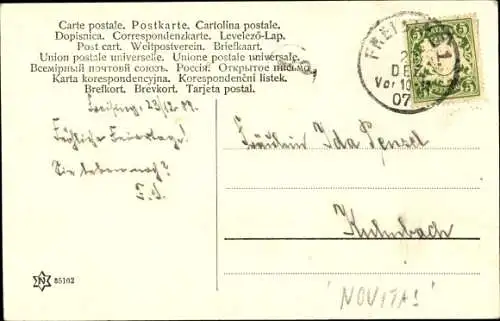 Carte postale. Postkarte. Cartolina postale.
Dopisnica. Correspondenzkarte. Levelező-Lap.
Post cart. Weltpostverein. Briefkaart.
Union postale universelle. Unione postale universale.
Всемірный почтовой союзъ. Россія. Открытое письмо.
Karta korespondencyjna. Korespondenční listek.
Brefkort. Brevkort. Tarjeta postal.
FREI
DE
Vor 10
07
5 5
Freising, 23/12. 07.
Fröhliche Feiertage!
Sie leben noch?
Fräulein Ida Penzel
Kulmbach
N 85102
"NOVITAS"